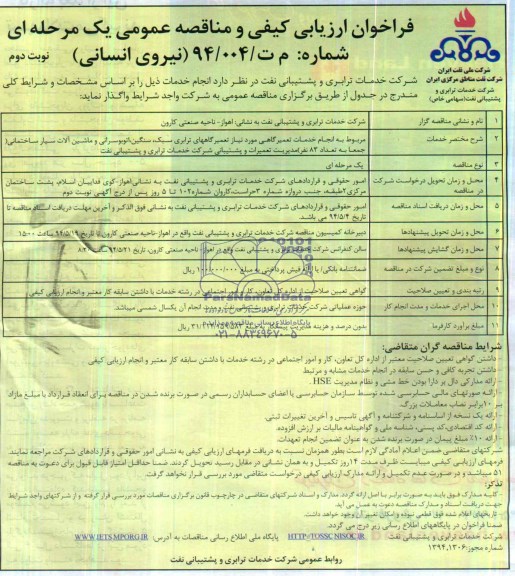 فراخوان ارزیابی کیفی و مناقصه عمومی یک مرحله ای
شماره: م ت/۹۴/۰۰۴ (نیروی انسانی)
نوبت دوم
شرکت ملی نفت ایران
شرکت نفت مناطق مرکزی ایران
شرکت خدمات ترابری و
پشتیبانی نفت (سهامی خاص)
شرکت خدمات ترابری و پشتیبانی نفت در نظر دارد انجام خدمات ذیل را بر اساس مشخصات و شرایط کلی
مندرج در جدول از طریق برگزاری مناقصه عمومی به شرکت واجد شرایط واگذار نماید:
۱ نام و نشانی مناقصه گزار شرکت خدمات ترابری و پشتیبانی نفت به نشانی: اهواز- ناحیه صنعتی کارون
۲ شرح مختصر خدمات مربوط به انجام خدمات تعمیرگاهی مورد نیاز تعمیرگاههای ترابری سبک، سنگین، اتوبوسرانی و ماشین آلات سیار ساختمانی(
جمعا به تعداد ۸۳ نفر)مدیریت تعمیرات و پشتیبانی شرکت خدمات ترابری و پشتیبانی نفت
۳ نوع مناقصه یک مرحله ای
۴ محل و زمان تحویل درخواست شرکت در مناقصه امور حقوقی و قراردادهای شرکت خدمات ترابری و پشتیبانی نفت به نشانی اهواز-کوی فداییان اسلام، پشت ساختمان
مرکزی ۲طبقه، جنب دروازه شماره ۳حراست، کاروان شماره ۱۰۲ تا ۵ روز پس از درج آگهی نوبت دوم
۵ محل و زمان دریافت اسناد مناقصه امور حقوقی و قراردادهای شرکت خدمات ترابری و پشتیبانی نفت به نشانی فوق الذکر و آخرین مهلت دریافت اسناد مناقصه تا
تاریخ ۹۴/۵/۴ می باشد.
۶ محل و زمان تحویل پیشنهادها دبیرخانه کمیسیون مناقصه شرکت خدمات ترابری و پشتیبانی نفت واقع در اهواز-ناحیه صنعتی کارون تا تاریخ ۹۴/۵/۱۹ ساعت ۱۵:۰۰
۷ محل و زمان گشایش پیشنهادها سالن کنفرانس شرکت خدمات ترابری و پشتیبانی نفت واقع در اهواز- ناحیه صنعتی کارون، تاریخ ۹۴/۵/۲۱ ساعت
۸ نوع و مبلغ تضمین شرکت در مناقصه ضمانتنامه بانکی یا
۹ رتبه بندی و تعیین صلاحیت گواهی تعیین صلاحیت از اداره کل تعاون، کار و امور اجتماعی در رشته خدمات با داشتن سابقه کار معتبر و انجام ارزیابی کیفی
۱۰ محل اجرای خدمات و مدت انجام کار حوزه عملیاتی شرکت خدمات ترابری و پشتیبانی نفت و مدت انجام آن یکسال شمسی میباشد.
۱۱ مبلغ برآورد کارفرما
ParsNamadData
پایگاه اطلاع رسانی
۰۲۱-۸۸۳۴۹۶۷۰-۵
شرایط مناقصه گران متقاضی:
- داشتن گواهی تعیین صلاحیت معتبر از اداره کل تعاون، کار و امور اجتماعی در رشته خدمات با داشتن سابقه کار معتبر و انجام ارزیابی کیفی.
- داشتن تجربه کافی و حسن سابقه در انجام خدمات مشابه و مرتبط.
- ارائه مدارکی دال بر دارا بودن خط مشی و نظام مدیریت HSE.
- ارائه صورتهای مالی حسابرسی شده توسط سازمان حسابرسی یا اعضای حسابداران رسمی در صورت برنده شدن در مناقصه برای انعقاد قرارداد با مبلغ مازاد
بر ۱۰برابر نصاب معاملات بزرگ.
- ارائه یک نسخه از اساسنامه و شرکتنامه و آگهی تاسیس و آخرین تغییرات ثبتی.
- ارائه کد اقتصادی، کد پستی، شناسه ملی و گواهینامه مالیات بر ارزش افزوده.
- ارائه ۱۰٪ مبلغ پیمان در صورت برنده شدن به عنوان تضمین انجام تعهدات.
شرکتهای متقاضی ضمن اعلام آمادگی لازم است بطور همزمان نسبت به دریافت فرمهای ارزیابی کیفی به نشانی امور حقوقی و قراردادهای شرکت مراجعه نمایند.
فرمهای ارزیابی کیفی میبایست ظرف مدت ۱۴ روز تکمیل و به همان نشانی در مقابل رسید تحویل گردند. ضمنا حداقل امتیاز قابل قبول برای دعوت به مناقصه
۵۱ میباشد و در صورت عدم تکمیل و ارائه مدارک ارزیابی کیفی درخواست متقاضی مورد بررسی قرار نخواهد گرفت.
تذکر:
- کلیه مدارک فوق باید به صورت برابر با اصل ارائه گردد. مدارک و اسناد شرکتهای متقاضی در چارچوب قانون برگزاری مناقصات مورد بررسی قرار گرفته و از شرکتهای واجد شرایط
جهت دریافت اسناد و مدارک مناقصه دعوت به عمل می آید.
- تاریخهای اعلام شده فوق قطعی نبوده و امکان تغییر آن وجود خواهد داشت.
ضمنا فراخوان در پایگاههای اطلاع رسانی زیر درج می گردد.
شرکت خدمات ترابری و پشتیبانی نفت HTTP://TOSSC.NISOC.IR پایگاه ملی اطلاع رسانی مناقصات به آدرس: WWW.IETS.MPORG.IR
شماره مجوز: ۱۳۹۴.۱۳۰۶
روابط عمومی شرکت خدمات ترابری و پشتیبانی نفت